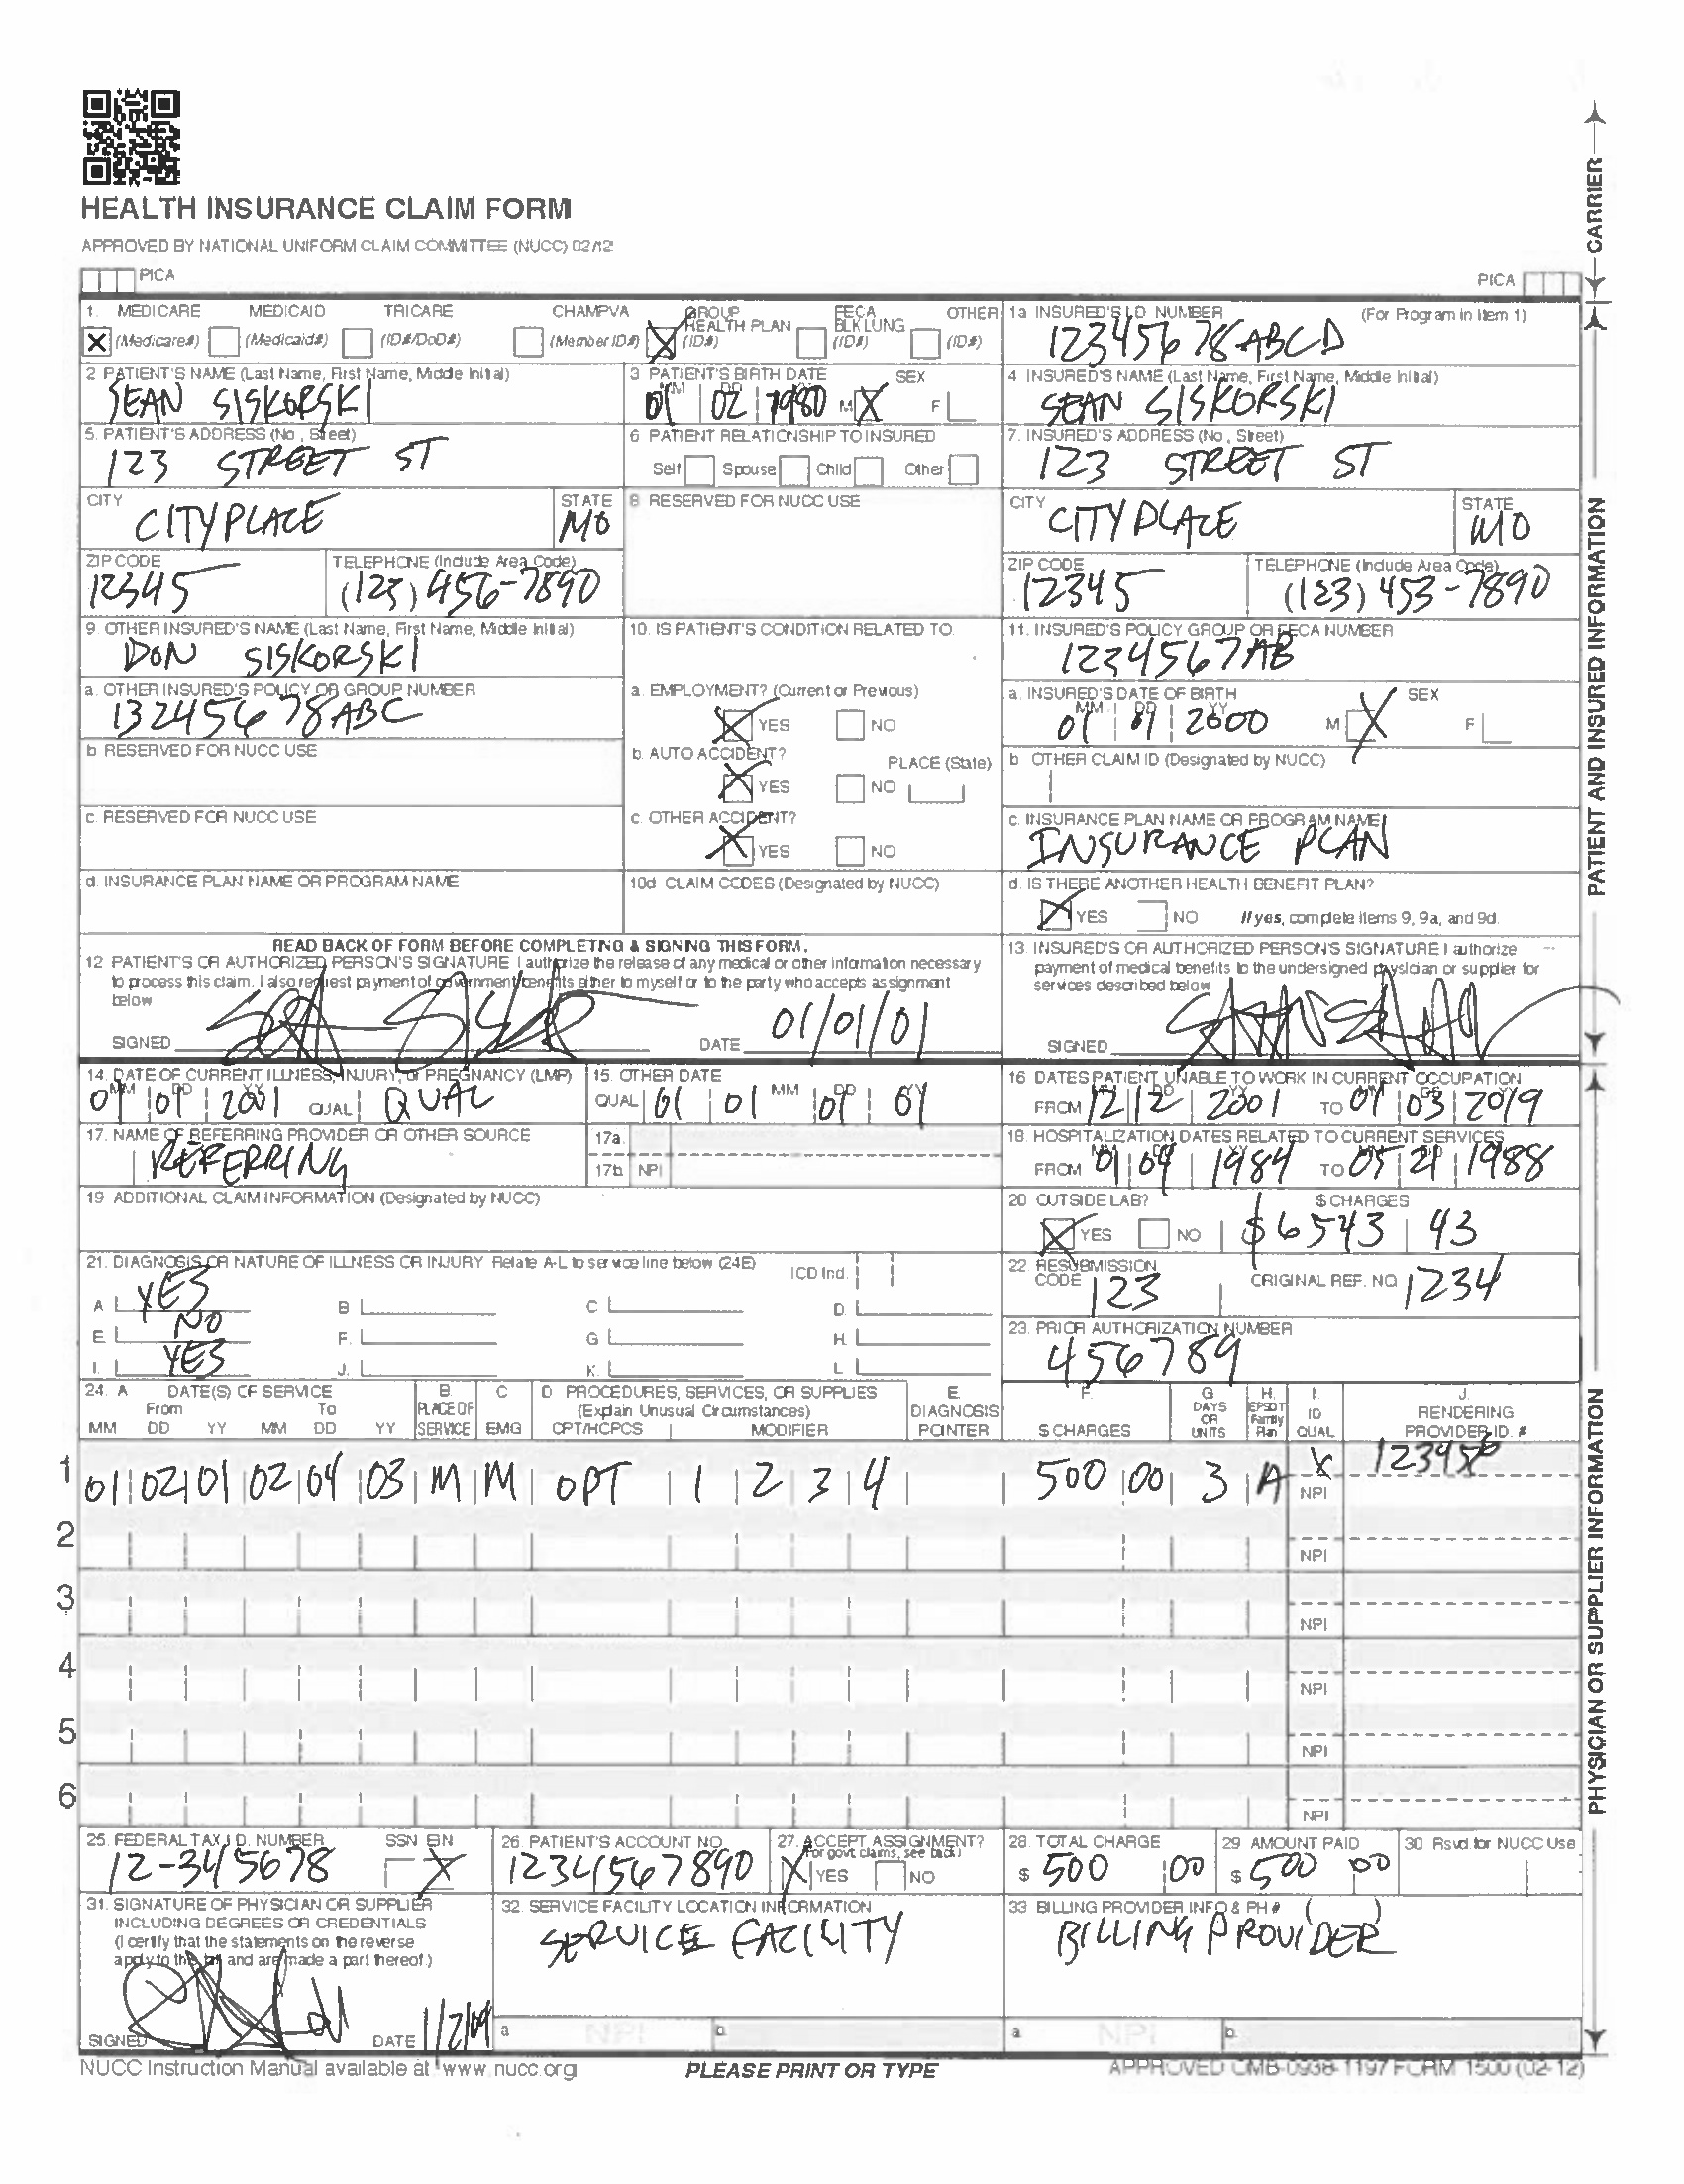 HEALTH INSURANCE CLAIM FORM
APPROVED BY NATIONAL UNIFORM CLAIM COMMITTEE (NUCC) 02/12
CARRIER
PICA
PICA
1. MEDICARE MEDICAID TRICARE CHAMPVA GROUP HEALTH PLAN FECA BLK LUNG OTHER
X (Medicare#) (Medicaid#) (ID#/DoD#) (Member ID#) X (ID#) (ID#) (ID#)
1a INSURED'S I.D. NUMBER (For Program in Item 1)
12345678ABCD
2 PATIENT'S NAME (Last Name, First Name, Middle Initial)
SEAN SISKORSKI
3 PATIENT'S BIRTH DATE SEX
MM DD
01 02 1980 M X F
4 INSURED'S NAME (Last Name, First Name, Middle Initial)
SEAN SISKORSKI
5. PATIENT'S ADDRESS (No., Street)
123 STREET ST
6 PATIENT RELATIONSHIP TO INSURED
Self Spouse Child Other
7. INSURED'S ADDRESS (No., Street)
123 STREET ST
CITY STATE
CITYPLACE MO
8 RESERVED FOR NUCC USE
CITY STATE
CITYPLACE MO
ZIP CODE TELEPHONE (Include Area Code)
12345 (123) 456-7890
ZIP CODE TELEPHONE (Include Area Code)
12345 (123) 453-7890
9. OTHER INSURED'S NAME (Last Name, First Name, Middle Initial)
DON SISKORSKI
10. IS PATIENT'S CONDITION RELATED TO
11. INSURED'S POLICY GROUP OR FECA NUMBER
1234567AB
a. OTHER INSURED'S POLICY OR GROUP NUMBER
13245678ABC
a. EMPLOYMENT? (Current or Previous)
X YES NO
a. INSURED'S DATE OF BIRTH SEX
MM DD YY
01 01 2000 M X F
b RESERVED FOR NUCC USE
b. AUTO ACCIDENT? PLACE (State)
X YES NO
b OTHER CLAIM ID (Designated by NUCC)
c. RESERVED FOR NUCC USE
c. OTHER ACCIDENT?
X YES NO
c. INSURANCE PLAN NAME OR PROGRAM NAME
INSURANCE PLAN
d. INSURANCE PLAN NAME OR PROGRAM NAME
10d CLAIM CODES (Designated by NUCC)
d. IS THERE ANOTHER HEALTH BENEFIT PLAN?
X YES NO If yes, complete items 9, 9a, and 9d.
PATIENT AND INSURED INFORMATION
READ BACK OF FORM BEFORE COMPLETING & SIGNING THIS FORM.
12 PATIENT'S OR AUTHORIZED PERSON'S SIGNATURE I authorize the release of any medical or other information necessary
to process this claim. I also request payment of government benefits either to myself or to the party who accepts assignment
below
SIGNED DATE 01/01/01
13. INSURED'S OR AUTHORIZED PERSON'S SIGNATURE I authorize
payment of medical benefits to the undersigned physician or supplier for
services described below
SIGNED
14. DATE OF CURRENT ILLNESS, INJURY, or PREGNANCY (LMP)
MM DD YY
01 01 2001 QUAL QUAL
15. OTHER DATE
MM DD YY
QUAL 01 01 01 01
16 DATES PATIENT UNABLE TO WORK IN CURRENT OCCUPATION
FROM 12 12 2001 TO 01 03 2019
17. NAME OF REFERRING PROVIDER OR OTHER SOURCE
REFERRING
17a.
17b. NPI
18. HOSPITALIZATION DATES RELATED TO CURRENT SERVICES
FROM 01 04 1984 TO 05 21 1988
19 ADDITIONAL CLAIM INFORMATION (Designated by NUCC)
20 OUTSIDE LAB? $ CHARGES
X YES NO $6543 43
21. DIAGNOSIS OR NATURE OF ILLNESS OR INJURY Relate A-L to service line below (24E) ICD Ind.
A YES B C D.
E. NO F. G H.
I. YES J. K. L.
22. RESUBMISSION CODE ORIGINAL REF. NO.
123 1234
23. PRIOR AUTHORIZATION NUMBER
456789
24. A DATE(S) OF SERVICE B. C D PROCEDURES, SERVICES, OR SUPPLIES E. F. G H. I. J.
From To PLACE OF (Explain Unusual Circumstances) DIAGNOSIS DAYS OR UNITS EPSDT Family Plan ID RENDERING
MM DD YY MM DD YY SERVICE EMG CPT/HCPCS MODIFIER POINTER $ CHARGES QUAL PROVIDER ID. #
X
1 01 02 01 02 04 03 M M OPT 1 2 3 4 500 00 3 A NPI
2 NPI
3 NPI
4 NPI
5 NPI
6 NPI
25. FEDERAL TAX I.D. NUMBER SSN EIN
12-345678 X
26. PATIENT'S ACCOUNT NO.
1234567890
27. ACCEPT ASSIGNMENT?
(For govt. claims, see back)
X YES NO
28. TOTAL CHARGE
$ 500 00
29 AMOUNT PAID
$ 500 00
30 Rsvd for NUCC Use
31. SIGNATURE OF PHYSICIAN OR SUPPLIER
INCLUDING DEGREES OR CREDENTIALS
(I certify that the statements on the reverse
apply to this bill and are made a part thereof.)
SIGNED DATE
32. SERVICE FACILITY LOCATION INFORMATION
SERVICE FACILITY
a. NPI b.
33 BILLING PROVIDER INFO & PH # ( )
BILLING PROVIDER
a. NPI b.
PHYSICIAN OR SUPPLIER INFORMATION
NUCC Instruction Manual available at www.nucc.org
PLEASE PRINT OR TYPE
APPROVED OMB-0938-1197 FORM 1500 (02-12)